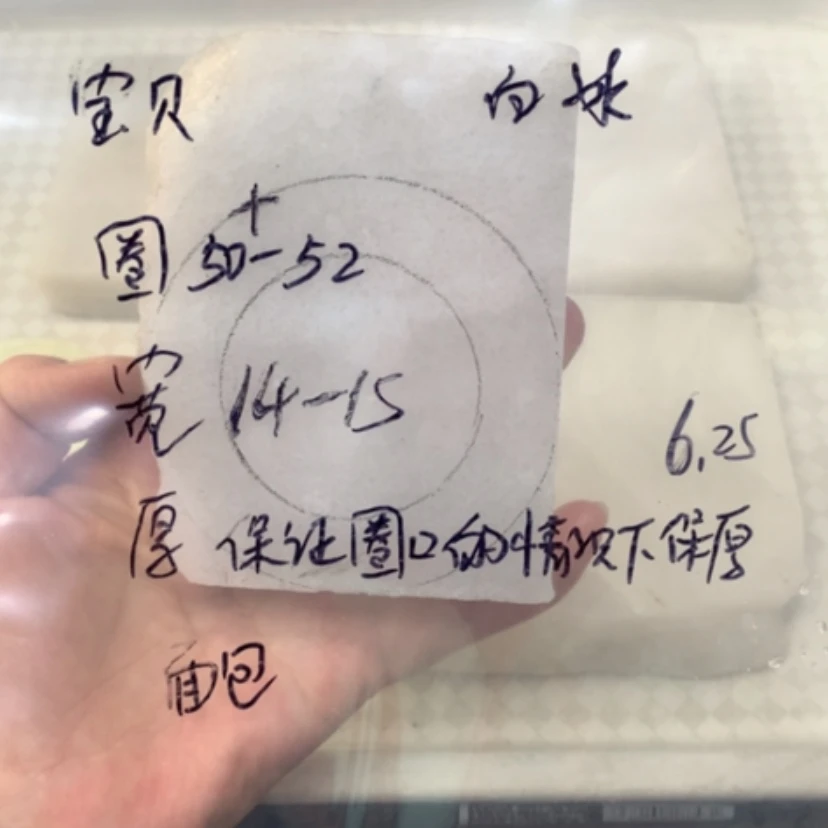 宝贝 白妹
圈 50-52
宽 14-15
6.25
厚 保证圈口的情况下保厚
面包